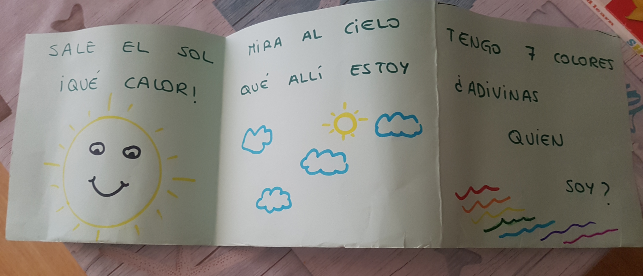 SALE EL SOL
¡QUÉ CALOR!
MIRA AL CIELO
QUÉ ALLÍ ESTOY
TENGO 7 COLORES
¿ADIVINAS
QUIEN
SOY?